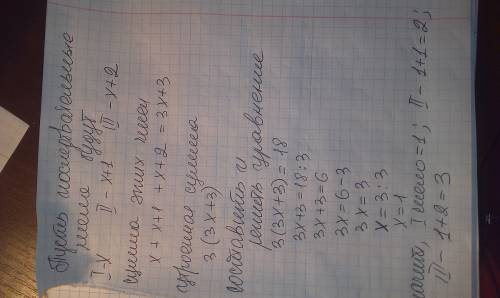 Пусть последовательные
числа будут
I - x II - x+1 III - x+2
сумма этих чисел
x + x+1 + x+2 = 3x+3
утроенная сумма
3 (3x+3)
составить и
решить уравнение
3(3x+3) = 18
3x+3 = 18:3
3x+3 = 6
3x = 6-3
3x = 3
x = 3:3
x = 1
I число = 1; II - 1+1=2;
III - 1+2 = 3